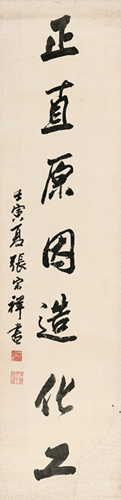 正直原因造化工
壬寅夏張宗祥書